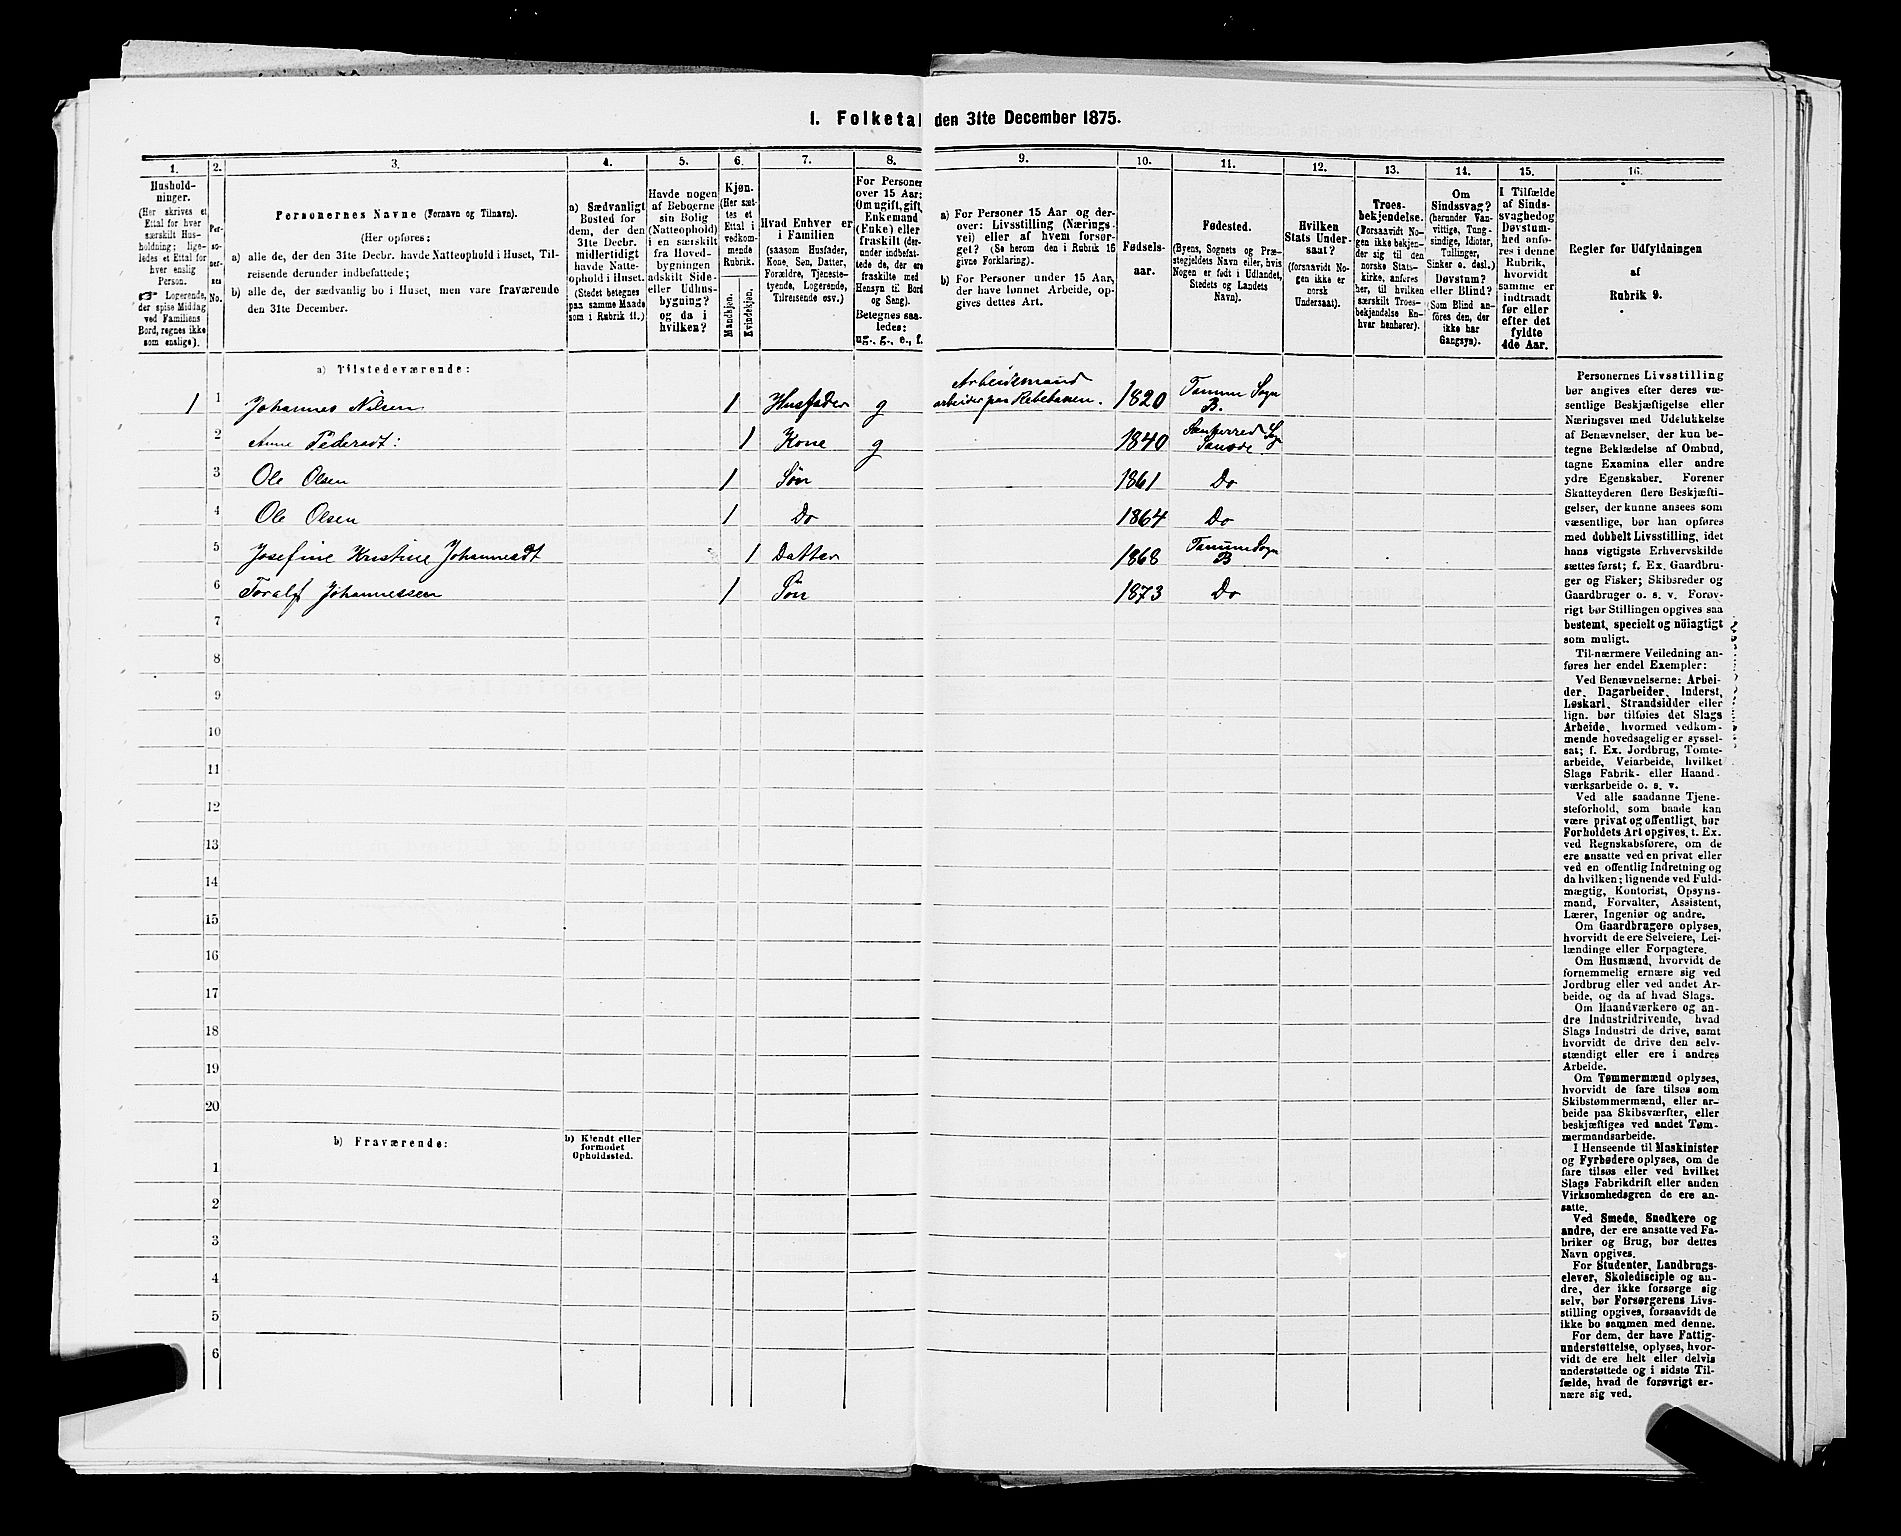 1. Folketal den 31te December 1875.
1.
2.
3.
4.
5.
6.
7.
8.
9.
10.
11.
12.
13.
14.
15.
16.
Hushold-
ninger.
(Her skrives et
Ettal for hver
særskilt Hus-
holdning; lige-
ledes et Ettal for
hver enslig
Person.
☞ Logerende,
der spise Middag
ved Familiens
Bord, regnes ikke
som enslige).
Per-
so-
ner-
nes
No.
Personernes Navne (Fornavn og Tilnavn).
(Her opføres:
a) alle de, der den 31te Decbr. havde Natteophold i Huset, Til-
reisende derunder indbefattede;
b) alle de, der sædvanlig bo i Huset, men vare fraværende
den 31te December.
a) Sædvanligt
Bosted for
dem, der den
31te Decbr.
midlertidigt
havde Natte-
ophold i Huset.
(Stedet betegnes
paa samme Maade
som i Rubrik 11.)
Havde nogen
af Beboerne
sin Bolig
(Natteophold)
i en særskilt
fra Hoved-
bygningen
adskilt Side-
eller Udhus-
bygning?
og da i
hvilken?
Kjøn.
(Her sæt-
tes et
Ettal i
vedkom-
mende
Rubrik.
Mandkjøn.
Kvindekjøn.
Hvad Enhver er
i Familien
(saasom Husfader,
Kone, Søn, Datter,
Forældre, Tjeneste-
tyende, Logerende,
Tilreisende osv.)
For Personer
over 15 Aar:
Om ugift, gift,
Enkemand
(Enke) eller
fraskilt (der-
under indbefat-
tede de, der ere
fraskilte med
Hensyn til Bord
og Seng).
Betegnes saa-
ledes:
ug., g., e., f.
a) For Personer 15 Aar og der-
over: Livsstilling (Nærings-
vei) eller af hvem forsør-
get? (Se herom den i Rubrik 16
givne Forklaring).
b) For Personer under 15 Aar,
der have lønnet Arbeide, op-
gives dettes Art.
Fødsels-
aar.
Fødested.
(Byens, Sognets og Præ-
stegjeldets Navn eller, hvis
Nogen er født i Udlandet,
Stedets og Landets
Navn).
Hvilken
Stats Under-
saat?
(forsaavidt No-
gen ikke er
norsk
Undersaat).
Troes-
bekjendelse.
(Forsaavidt No-
gen ikke bekjen-
der sig til den
norske Stats-
kirke, anføres
her, til hvilken
særskilt Troes-
bekjendelse En-
hver henhører).
Om
Sindssvag?
(herunder Van-
vittige, Tung-
sindige, Idioter,
Tullinger,
Sinker o. desl.)
Døvstum?
eller Blind?
(Som Blind an-
føres den, der
ikke har
Gangsyn).
I Tilfælde
af Sinds-
svaghed og
Døvstum-
hed anfø-
res i denne
Rubrik,
hvorvidt
samme er
indtraadt
før eller
efter det
fyldte
4de Aar.
Regler for Udfyldningen
af
Rubrik 9.
a) Tilstedeværende:
1 1 Johannes Nilsen 1 Husfader g Arbeidsmand
arbeider paa Rebebanen. 1820 Tanum Sogn
B.
2 Anne Pedersdt: 1 Kone g 1840 Sogn
3 Ole Olsen 1 Søn 1861 Do
4 Ole Olsen 1 Do 1864 Do
5 Josefine Kristine Johannesdt 1 Datter 1868 Tanum Sogn
B
6 Toralf Johannessen 1 Søn 1873 Do
7
8
9
10
11
12
13
14
15
16
17
18
19
20
b) Fraværende:
b) Kjendt eller
formodet
Opholdssted.
1
2
3
4
5
6
Personernes Livsstilling
bør angives efter deres væ-
sentlige Beskjæftigelse eller
Næringsvei med Udelukkelse
af Benævnelser, der kun be-
tegne Beklædelse af Ombud,
tagne Examina eller andre
ydre Egenskaber. Forener
Skatteyderen flere Beskjæfti-
gelser, der kunne ansees som
væsentlige, bør han opføres
med dobbelt Livsstilling, idet
hans vigtigste Erhvervskilde
sættes først; f. Ex. Gaardbru-
ger og Fisker; Skibsreder og
Gaardbruger o. s. v. Forøv-
rigt bør Stillingen opgives saa
bestemt, specielt og nöiagtigt
som muligt.
Til nærmere Veiledning an-
føres her endel Exempler:
Ved Benævnelserne: Arbei-
der, Dagarbeider, Inderst,
Løskarl, Strandsidder eller
lign. bør tilføies det Slags
Arbeide, hvormed vedkom-
mende hovedsagelig er syssel-
sat; f. Ex. Jordbrug, Tomte-
arbeide, Veiarbeide, hvilket
Slags Fabrik- eller Haand-
værksarbeide o. s. v.
Ved alle saadanne Tjene-
steforhold, som baade kan
være privat og offentligt, bør
Forholdets Art opgives, t. Ex.
ved Regnskabsførere, om de
ere ansatte ved en privat eller
ved en offentlig Indretning og
da hvilken; lignende ved Fuld-
mægtig, Kontorist, Opsyns-
mand, Forvalter, Assistent,
Lærer, Ingeniør og andre.
Om Gaardbrugere oplyses,
hvorvidt de ere Selveiere, Lei-
lændinge eller Forpagtere.
Om Husmænd, hvorvidt de
fornemmelig ernære sig ved
Jordbrug eller ved andet Ar-
beide, og da af hvad Slags.
Om Haandværkere og an-
dre Industridrivende, hvad
Slags Industri de drive, samt
hvorvidt de drive den selv-
stændigt eller ere i andres
Arbeide.
Om Tømmermænd oplyses,
hvorvidt de fare tilsøs som
Skibstømmermænd, eller ar-
beide paa Skibsværfter, eller
beskjæftiges ved andet Tøm-
mermandsarbeide.
I Henseende til Maskinister
og Fyrbødere oplyses, om de
fare tilsøs eller ved hvilket
Slags Fabrikdrift eller anden
Virksomhedsgren de ere an-
satte.
Ved Smede, Snedkere og
andre, der ere ansatte ved Fa-
briker og Brug, bør dettes
Navn opgives.
For Studenter, Landbrugs-
elever, Skoledisciple og an-
dre, der ikke forsørge sig
selv, bør Forsørgerens Livs-
stilling opgives, forsaavidt de
ikke bo sammen med denne.
For dem, der have Fattig-
understøttelse, oplyses, hvor-
vidt de ere helt eller delvis
understøttede og i sidste Til-
fælde, hvad de forøvrigt er-
nære sig ved.